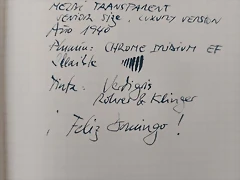 MEDAL TRANSPARENT
VENTOR SIZE, LUXURY VERSION
Año 1940
Plumín: CHROME IRIDIUM EF
flexible
Tinta: Verdigris
Rohrer & Klinger
¡Feliz Domingo!